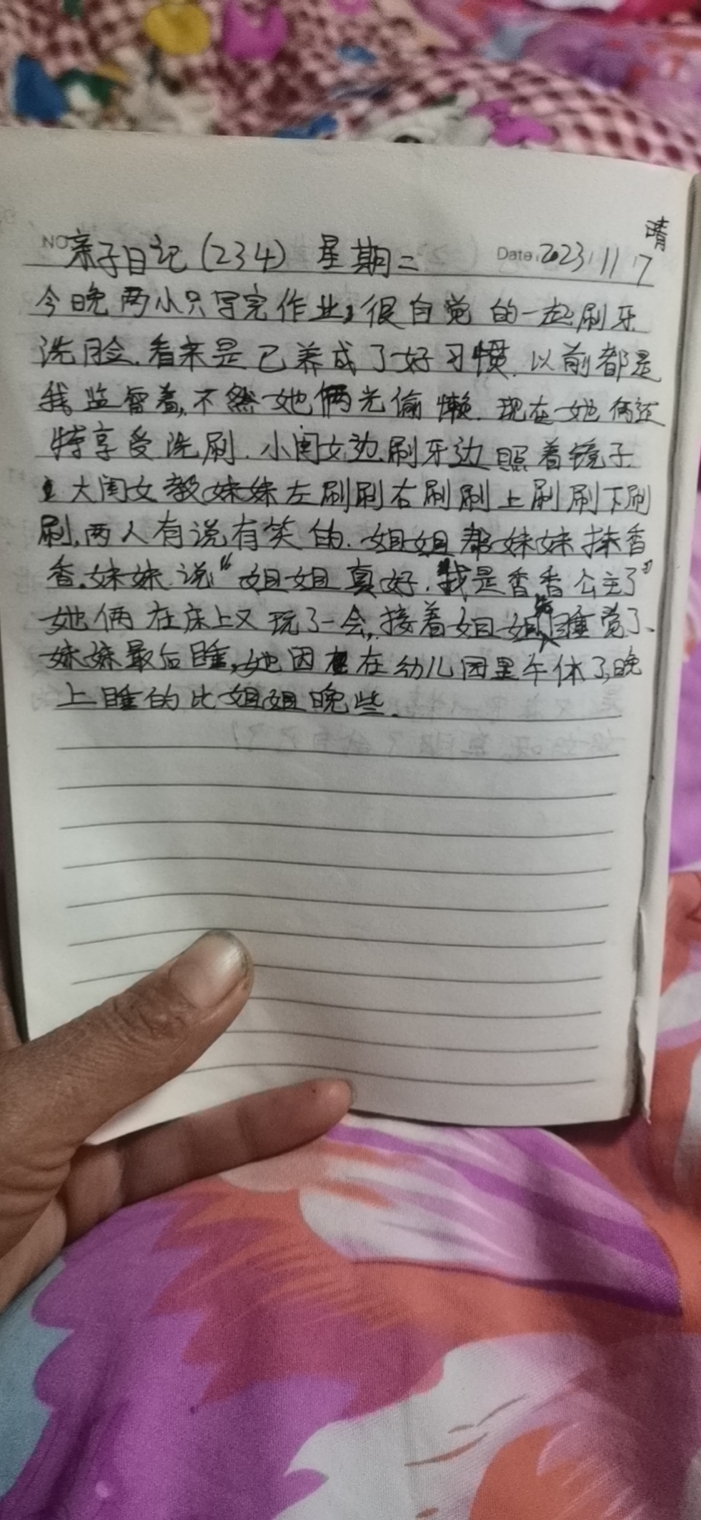 晴
NO 亲子日记(234) 星期二 Date: 2023.11.7
今晚两小只写完作业,很自觉的一起刷牙
洗脸.看来是已养成了好习惯.以前都是
我监督着,不然她俩光偷懒.现在她俩还
特享受洗刷.小闺女边刷牙边照着镜子
大闺女教妹妹左刷刷右刷刷上刷刷下刷
刷,两人有说有笑的.姐姐帮妹妹抹香
香.妹妹说"姐姐真好.我是香香公主了"
她俩在床上又玩了一会,接着姐姐睡觉了、
妹妹最后睡,她因在幼儿园里午休了,晚
上睡的比姐姐晚些.